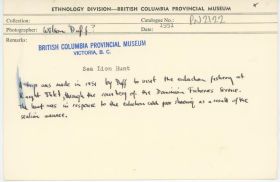 ETHNOLOGY DIVISION—BRITISH COLUMBIA PROVINCIAL MUSEUM
Collection: Catalogue No.: PN2122
Photographer: Wilson Duff? Date: 1951
Remarks:
BRITISH COLUMBIA PROVINCIAL MUSEUM
VICTORIA, B. C.
Sea Lion Hunt
A trip was made in 1951 by Duff to visit the eulachon fishery at
Knight Inlet, through the courtesy of the Dominion Fisheries
The hunt was in response to the eulachon as a result of the
sealion menace.